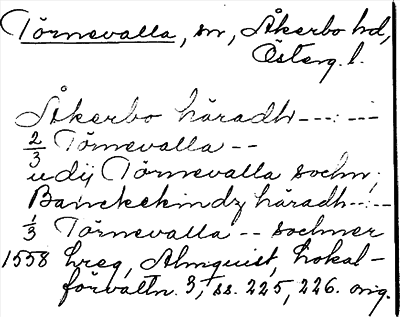 Törnevalla, sn, Åkerbo hd,
Österg. l.
Åkerbo häradh ---:--
2/3 Törnevalla --
udij Törnevalla sochn;
Banckekindz häradh--:--
1/3 Törnevalla -- sochner
1558 Lreg, Almquist, Lokal-
förvaltn. 3, ss. 225, 226. orig.